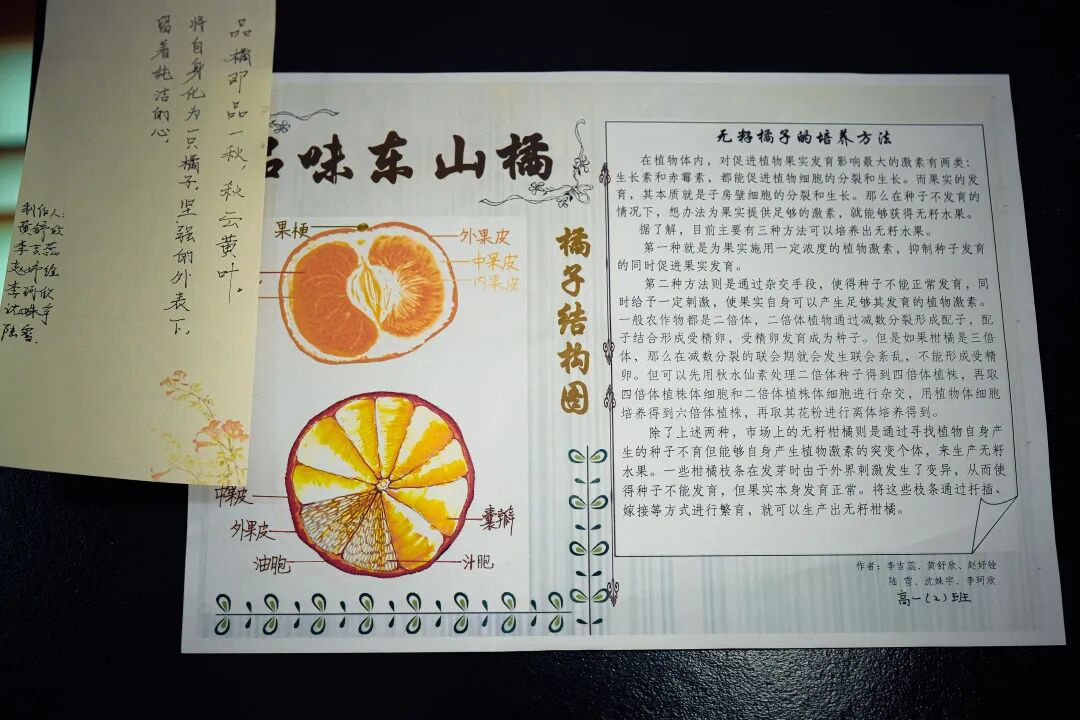 品橘即品一秋，秋云黄叶。
将自身化为一只橘子，坚强的外表下，
留着纯洁的心。
制作人：
黄舒欣
李吉蕊
赵妤铨
李珂欣
沈姝宇
陆雪
品味东山橘
橘子结构图
果梗
外果皮
中果皮
内果皮
中果皮
外果皮
油胞
囊瓣
汁胞
无籽橘子的培养方法
在植物体内，对促进植物果实发育影响最大的激素有两类：
生长素和赤霉素，都能促进植物细胞的分裂和生长。而果实的发
育，其本质就是子房壁细胞的分裂和生长。那么在种子不发育的
情况下，想办法为果实提供足够的激素，就能够获得无籽水果。
据了解，目前主要有三种方法可以培养出无籽水果。
第一种就是为果实施用一定浓度的植物激素，抑制种子发育
的同时促进果实发育。
第二种方法则是通过杂交手段，使得种子不能正常发育，同
时给予一定刺激，使果实自身可以产生足够其发育的植物激素。
一般农作物都是二倍体，二倍体植物通过减数分裂形成配子，配
子结合形成受精卵，受精卵发育成为种子。但是如果柑橘是三倍
体，那么在减数分裂的联会期就会发生联会紊乱，不能形成受精
卵。但可以先用秋水仙素处理二倍体种子得到四倍体植株，再取
四倍体植株体细胞和二倍体植株体细胞进行杂交，用植物体细胞
培养得到六倍体植株，再取其花粉进行离体培养得到。
除了上述两种，市场上的无籽柑橘则是通过寻找植物自身产
生的种子不育但能够自身产生植物激素的突变个体，来生产无籽
水果。一些柑橘枝条在发芽时由于外界刺激发生了变异，从而使
得种子不能发育，但果实本身发育正常。将这些枝条通过扦插、
嫁接等方式进行繁育，就可以生产出无籽柑橘。
作者：李吉蕊、黄舒欣、赵妤铨
陆 雪、沈姝宇、李珂欣
高一（2）班